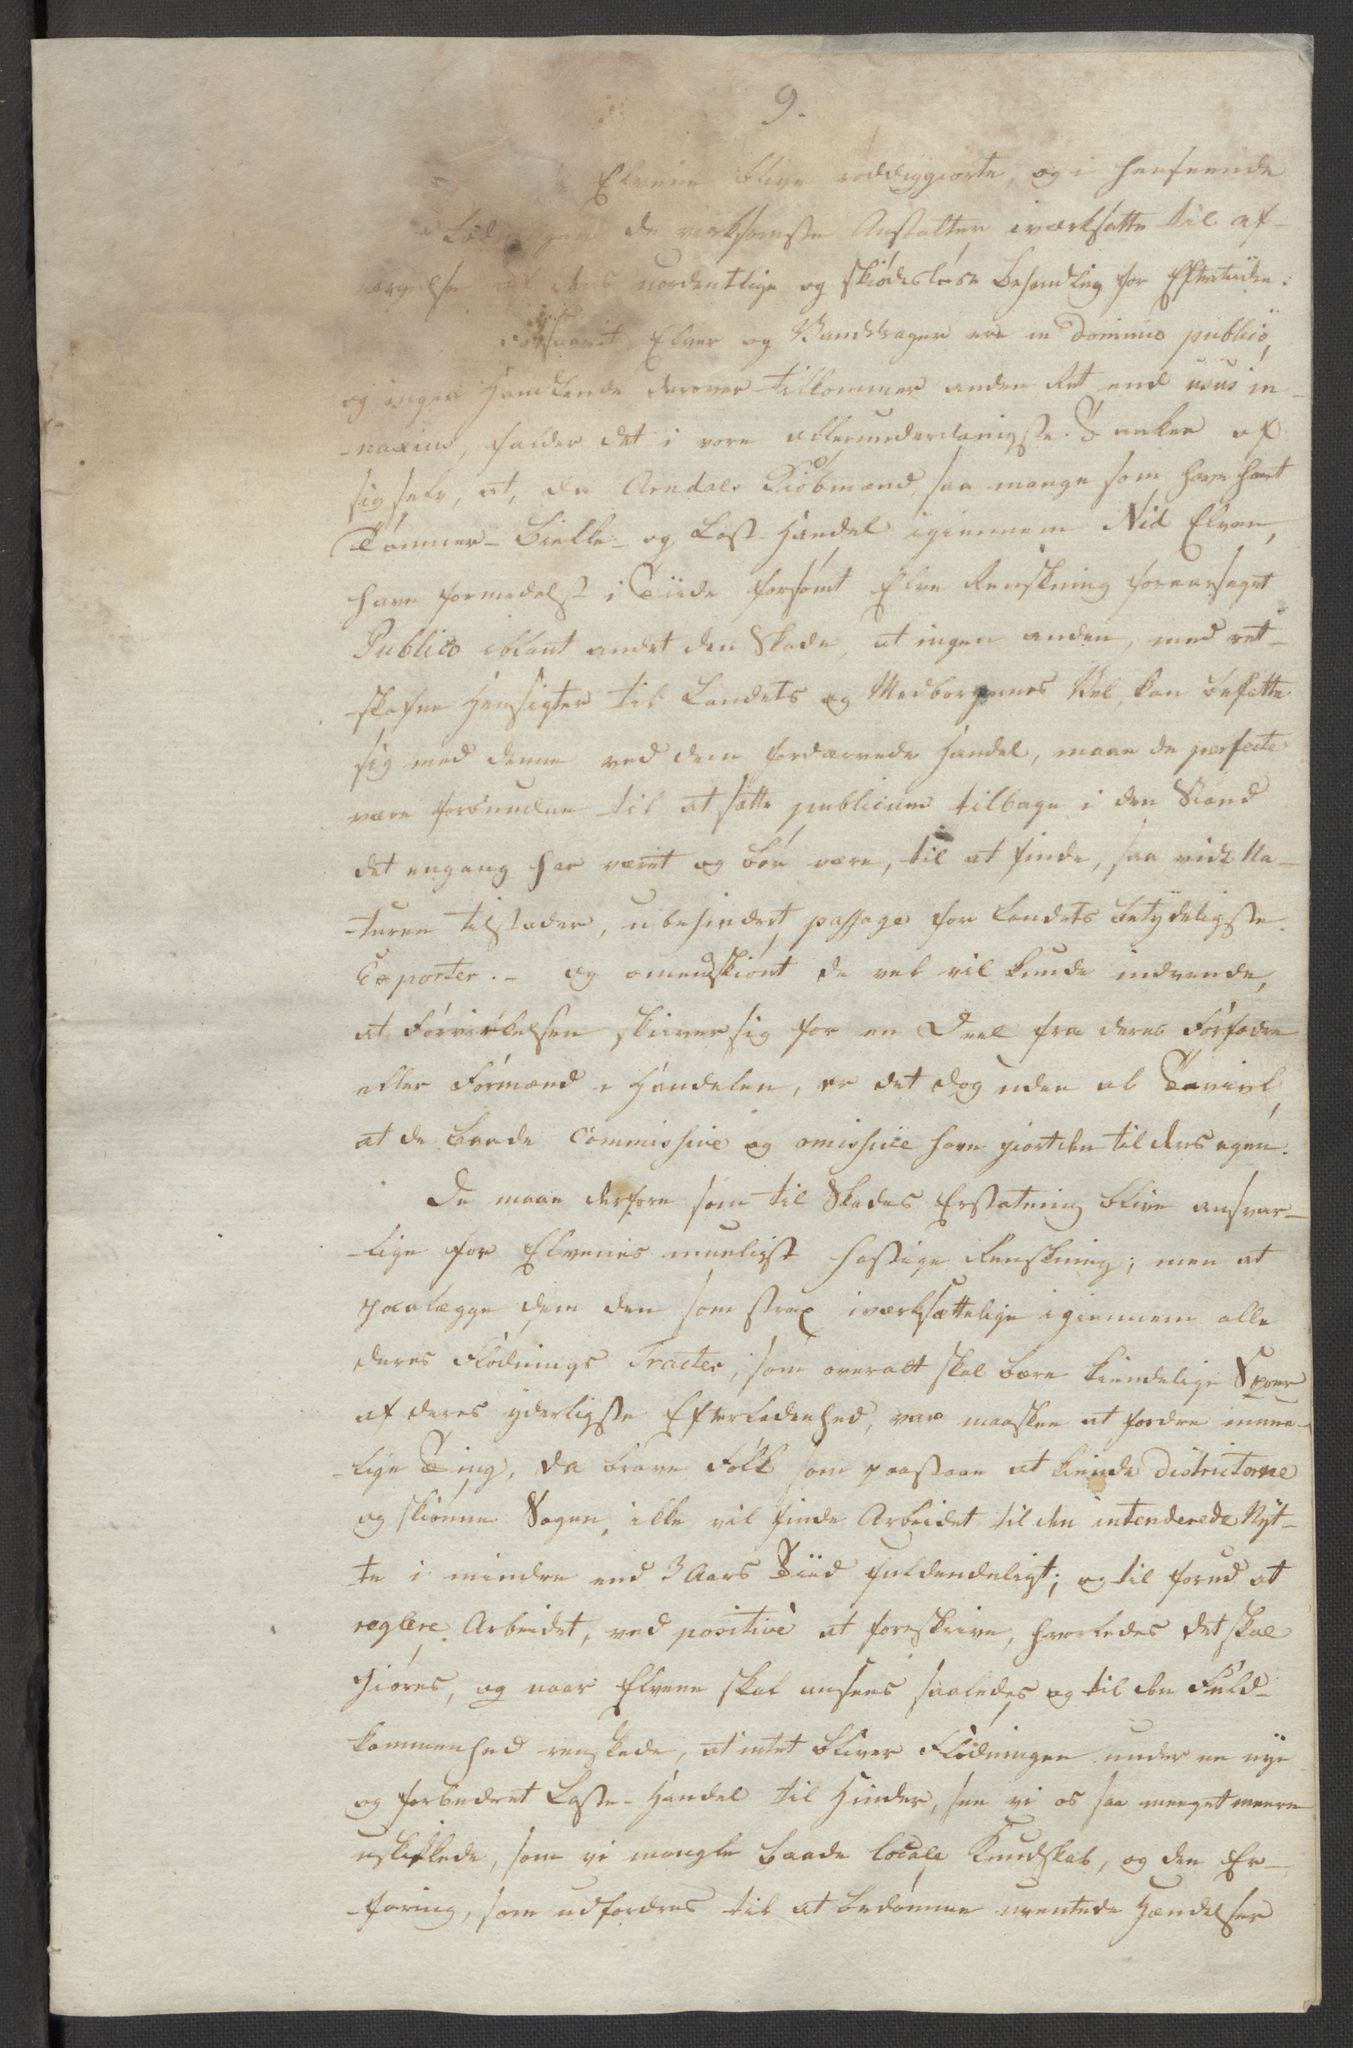 9.
Elvene blive ryddiggiorte, og i henseende
de virksomste Anstalter iværksatte til af-
deres uordentlige og skiødesløse Behandling for Eftertiden.
Elver og Vanddrager ere in Dominio publico,
og ingen Handlende derover tilkommer anden Ret end usus in-
-noxius, falder det i vore allerunderdanigste Tanker af
sig selv, at, da Arendals Kiøbmænd, saa mange som have havt
Tømmer- Bielke- og Last-Handel igiennem Nid Elven,
have formedelst i Tiide forsømt Elve Renskning foraarsaget
Publico iblant andet den Skade, at ingen anden, med ret-
-skafne Hensigter til Landets og Medborgernes Vel, kan befatte
sig med denne ved dem fordærvede Handel, maae de perfecte
være forbundne til at sætte publicum tilbage i den Stand
det engang har været og bør være, til at finde, saa vidt Na-
-turen tilstæder, ubehindret passage for Landets betydeligste
Exporter. - og omendskiønt de vel vil kunde indvende,
at Forvirkelsen skriver sig for en Deel fra deres Forfædre
eller Formænd i Handelen, er det dog uden al Tvivl,
at de baade Commissive og omissive have giort den til deres egen.
De maae derfore som til Skades Erstatning blive ansvar-
-lige for Elvenes mueligst hastige Renskning; men at
paalægge dem den som strax iværksættelige igiennem alle
deres Flødnings Tracter, som overalt skal bære kiendelige Spoer
af deres yderligste Efterladenhed, var maaskee at fordre umue-
-lige Ting, da brave Folk som paastaae at kiende Districterne
og skiønne Sagen, ikke vil finde Arbeidet til den intenderede Nyt-
-te i mindre end 3 Aars Tiid fuldendeligt; og til forud at
reglere Arbeidet, ved positivè at foreskrive, hvorledes det skal
giøres, og naar Elvene skal ansees saaledes og til den Fuld-
kommenhed renskede, at intet bliver Flødningen under en nye
og forbedret Laste-Handel til Hinder, see vi os saa meeget meere
uskikkede, som vi mangle baade locale Kundskab, og den Er-
-faring, som udfordres til at bedømme uventede Hændelser